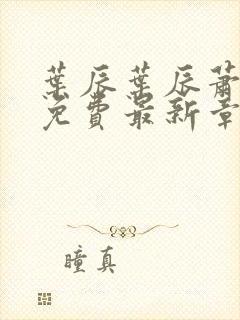 葉辰葉辰蕭
免費最新章
瞳真